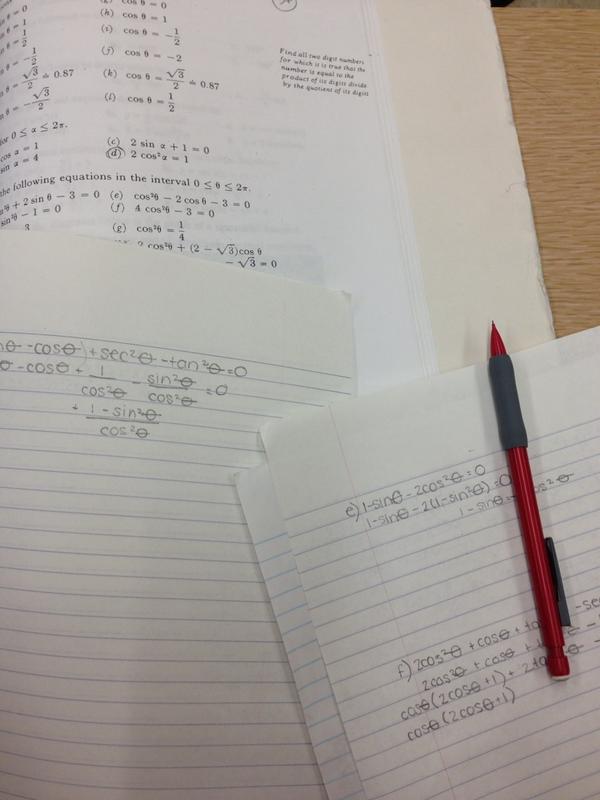 cos θ = 0
θ = 0
(h) cos θ = 1
θ = 1
(i) cos θ = -1/2
θ = 1/2
(j) cos θ = -2
θ = -1/2
(k) cos θ = √3/2 ≐ 0.87
θ = √3/2 ≐ 0.87
(l) cos θ = 1/2
θ = -√3/2
Find all two digit numbers
for which is is true that the
number is equal to the
product of its digits divide
by the quotient of its digits
for 0 ≤ α ≤ 2π.
cos α = 1
(c) 2 sin α + 1 = 0
sin α = 4
(d) 2 cos²α = 1
the following equations in the interval 0 ≤ θ ≤ 2π.
+ 2 sin θ - 3 = 0
(e) cos²θ - 2 cos θ - 3 = 0
sin²θ - 1 = 0
(f) 4 cos²θ - 3 = 0
3
(g) cos²θ = 1/4
2 cos²θ + (2 - √3)cos θ
- √3 = 0
-cosθ) + sec²θ - tan²θ = 0
θ - cosθ + 1/cos²θ - sin²θ/cos²θ = 0
+ 1 - sin²θ/cos²θ
e) 1 - sinθ - 2cos²θ = 0
1 - sinθ - 2(1 - sin²θ) = 0
1 - sinθ cos²θ
f) 2cos²θ + cosθ + ta
2cos²θ + cosθ +
cosθ(2cosθ+1) +
cosθ(2cosθ+1)